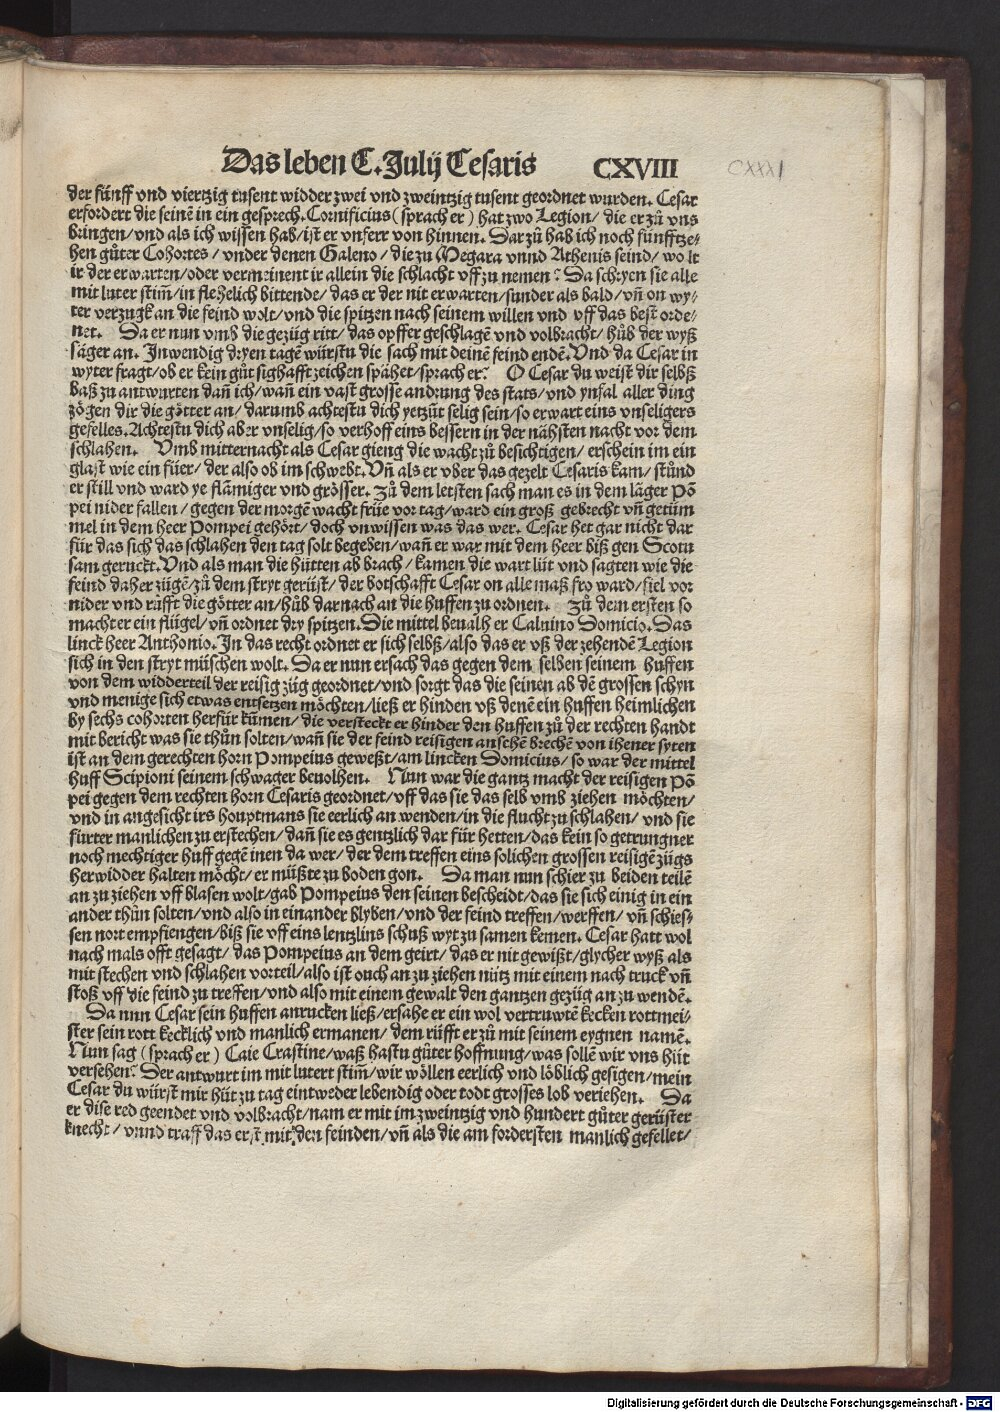 Das leben C. Julij Cesaris CXVIII
CXXXI
der fünff vnd viertzig tusent widder zwei vnd zweintzig tusent geordnet wurden. Cesar
erfordert die seinē in ein gesprech. Cornificius (sprach er) hat zwo Legion/ die er zů vns
bringen/ vnd als ich wissen hab/ ist er vnferr von hinnen. Dar zů hab ich noch fünfftze-
hen gůter Cohortes/ vnder denen Galeno/ die zu Megara vnnd Athenis seind/ wo lt
ir der erwarten/ oder vermeinent ir allein die schlacht vff zu nemen? Da schryen sie alle
mit luter stim̄/ in fleßelich bittende/ das er der nit erwarten/ sunder als bald/ vn̄ on wy-
ter verzugk an die feind wolt/ vnd die spitzen nach seinem willen vnd vff das best orde-
net. Da er nun vmb die gezüg ritt/ das opffer geschlagē vnd volbracht/ hůb der wyß
säger an. Inwendig dryen tagē würstu die sach mit deinē feind endē. Vnd da Cesar in
wyter fragt/ ob er kein gůt sighafft zeichen spähet/ sprach er? O Cesar du weist dir selbß
baß zu antwurten dan̄ ich/ wan̄ ein vast grosse andrung des stats/ vnd ynfal aller ding
zögen dir die götter an/ darumb achtestu dich yetzůt selig sein/ so erwart eins vnseligers
gefelles. Achtestu dich aber vnselig/ so verhoff eins bessern in der nähsten nacht vor dem
schlahen. Vmb mitternacht als Cesar gieng die wacht zů besichtigen/ erschein im ein
glast wie ein füer/ der also ob im schwebt. Vn̄ als er vber das gezelt Cesaris kam/ stůnd
er still vnd ward ye flāmiger vnd grösser. Zů dem letsten sach man es in dem läger Pō
pei nider fallen/ gegen der morgē wacht früe vor tag/ ward ein groß gebrecht vn̄ getüm
mel in dem heer Pompei gehört/ doch vnwissen was das wer. Cesar het gar nicht dar
für das sich das schlahen den tag solt begeben/ wan̄ er war mit dem heer biß gen Scotu
sam geruckt. Vnd als man die hütten ab brach/ kamen die wart lüt vnd sagten wie die
feind daher zügē/ zů dem stryt gerüst/ der botschafft Cesar on alle maß fro ward/ fiel vor
nider vnd růfft die götter an/ hůb darnach an die huffen zu ordnen. Zů dem ersten so
macht er ein flügel/ vn̄ ordnet dry spitzen. Die mittel beualh er Caluino Domicio. Das
linck heer Anthonio. In das recht ordnet er sich selbß/ also das er vß der zehendē Legion
sich in den stryt müschen wolt. Da er nun ersach das gegen dem selben seinem huffen
von dem widderteil der reisig züg geordnet/ vnd sorgt das die seinen ab dē grossen schyn
vnd menige sich etwas entsetzen möchten/ ließ er hinden vß denē ein huffen heimlichen
by sechs cohorten herfür kūmen/ die versteckt er hinder den huffen zů der rechten handt
mit bericht was sie thůn solten/ wan̄ sie der feind reisigen anschē brechē von ihener syten
ist an dem gerechten horn Pompeius geweßt/ am lincken Domicius/ so war der mittel
huff Scipioni seinem schwager beuolhen. Nun war die gantz macht der reisigen Pō
pei gegen dem rechten horn Cesaris geordnet/ vff das sie das selb vmb ziehen möchten/
vnd in angesicht irs houptmans sie eerlich an wenden/ in die flucht zu schlahen/ vnd sie
furter manlichen zu erstechen/ dan̄ sie es gentzlich dar für hetten/ das kein so getrungner
noch mechtiger huff gegē inen da wer/ der dem treffen eins solichen grossen reisigē zügs
herwidder halten möcht/ er müßte zu boden gon. Da man nun schier zu beiden teilē
an zu ziehen vff blasen wolt/ gab Pompeius den seinen bescheidt/ das sie sich einig in ein
ander thůn solten/ vnd also in einander blyben/ vnd der feind treffen/ werffen/ vn̄ schies-
sen nort empfiengen/ biß sie vff eins lentzlins schuß wyt zu samen kemen. Cesar hatt wol
nach mals offt gesagt/ das Pompeius an dem geirt/ das er nit gewißt/ glycher wyß als
mit stechen vnd schlahen vorteil/ also ist ouch an zu ziehen nütz mit einem nach truck vn̄
stoß vff die feind zu treffen/ vnd also mit einem gewalt den gantzen gezüg an zu wendē.
Da nun Cesar sein huffen anrucken ließ/ ersahe er ein wol vertruwtē kecken rottmei-
ster sein rott kecklich vnd manlich ermanen/ dem růfft er zů mit seinem eygnen namē.
Nun sag (sprach er) Caie Crastine/ waß hastu gůter hoffnung/ was sollē wir vns hüt
versehen? Der antwurt im mit lutert stim̄/ wir wöllen eerlich vnd löblich gesigen/ mein
Cesar du würst mir hüt zu tag eintweder lebendig oder todt grosses lob veriehen. Da
er dise red geendet vnd volbracht/ nam er mit im zweintzig vnd hundert gůter gerüster
knecht/ vnnd traff das erst mit den feinden/ vn̄ als die am fordersten manlich gefellet/
Digitalisierung gefördert durch die Deutsche Forschungsgemeinschaft - DFG